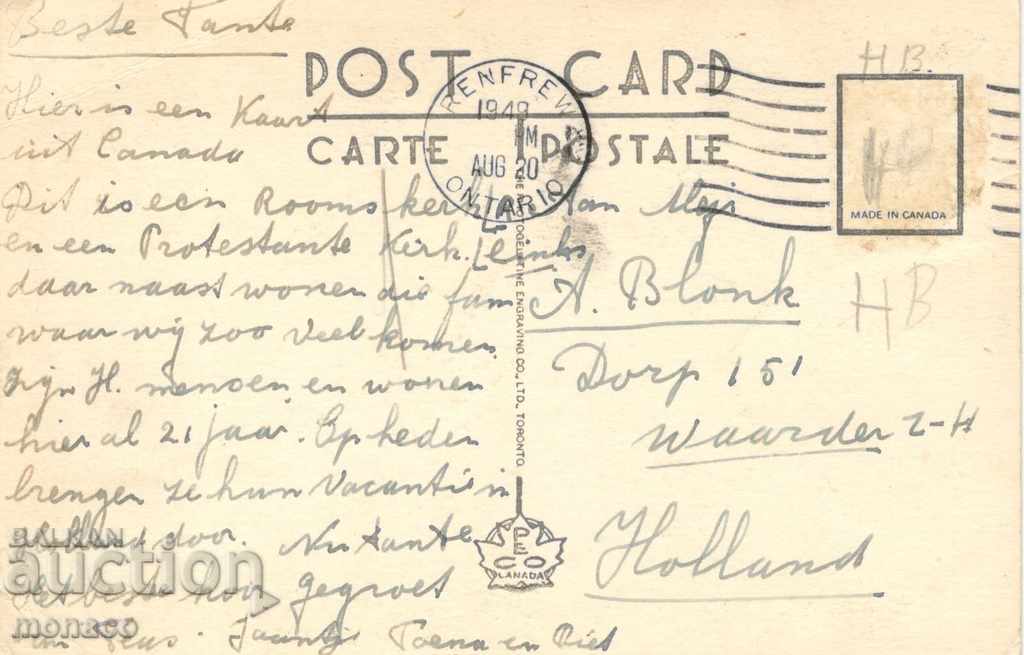 Beste Tante
Hier is een Kaart
uit Canada
Dit is een Rooms kerk
en een Protestante Kirk. Links
daar naast wonen die fam
waar wij zoo veel komen
Zijn H. mensen en wonen
hier al 21 jaar. Op heden
brengen ze hun Vacantie in
door. Nu tante
het beste hoor gegroet
Jaantje Toena en Piet
POST CARD
CARTE POSTALE
RENFREW
1949
PM
AUG 20
ONTARIO
HB.
MADE IN CANADA
HB
Aan Mej
A. Blonk
Dorp 151
Waarder Z-H
Holland
THE PHOTOGELATINE ENGRAVING CO., LTD., TORONTO
PECO
CANADA
BALKAN
auction
monaco